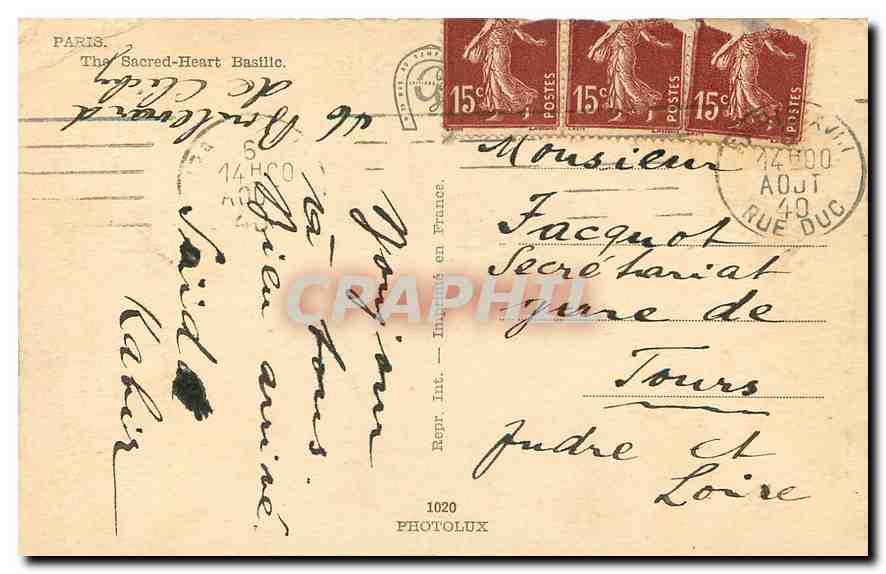 PARIS.
The Sacred-Heart Basilic.
46 Boulevard
de Clichy
Bonjour
à tous
Bien arrivé
Saïd
Kabir
Repr. Int. — Imprimé en France.
1020
PHOTOLUX
15c POSTES
15c POSTES
15c POSTES
6
14H00
AOUT
14H00
AOUT
40
RUE DUC
Monsieur
Jacquot
Secrétariat
gare de
Tours
Indre et
Loire
CRAPHIL